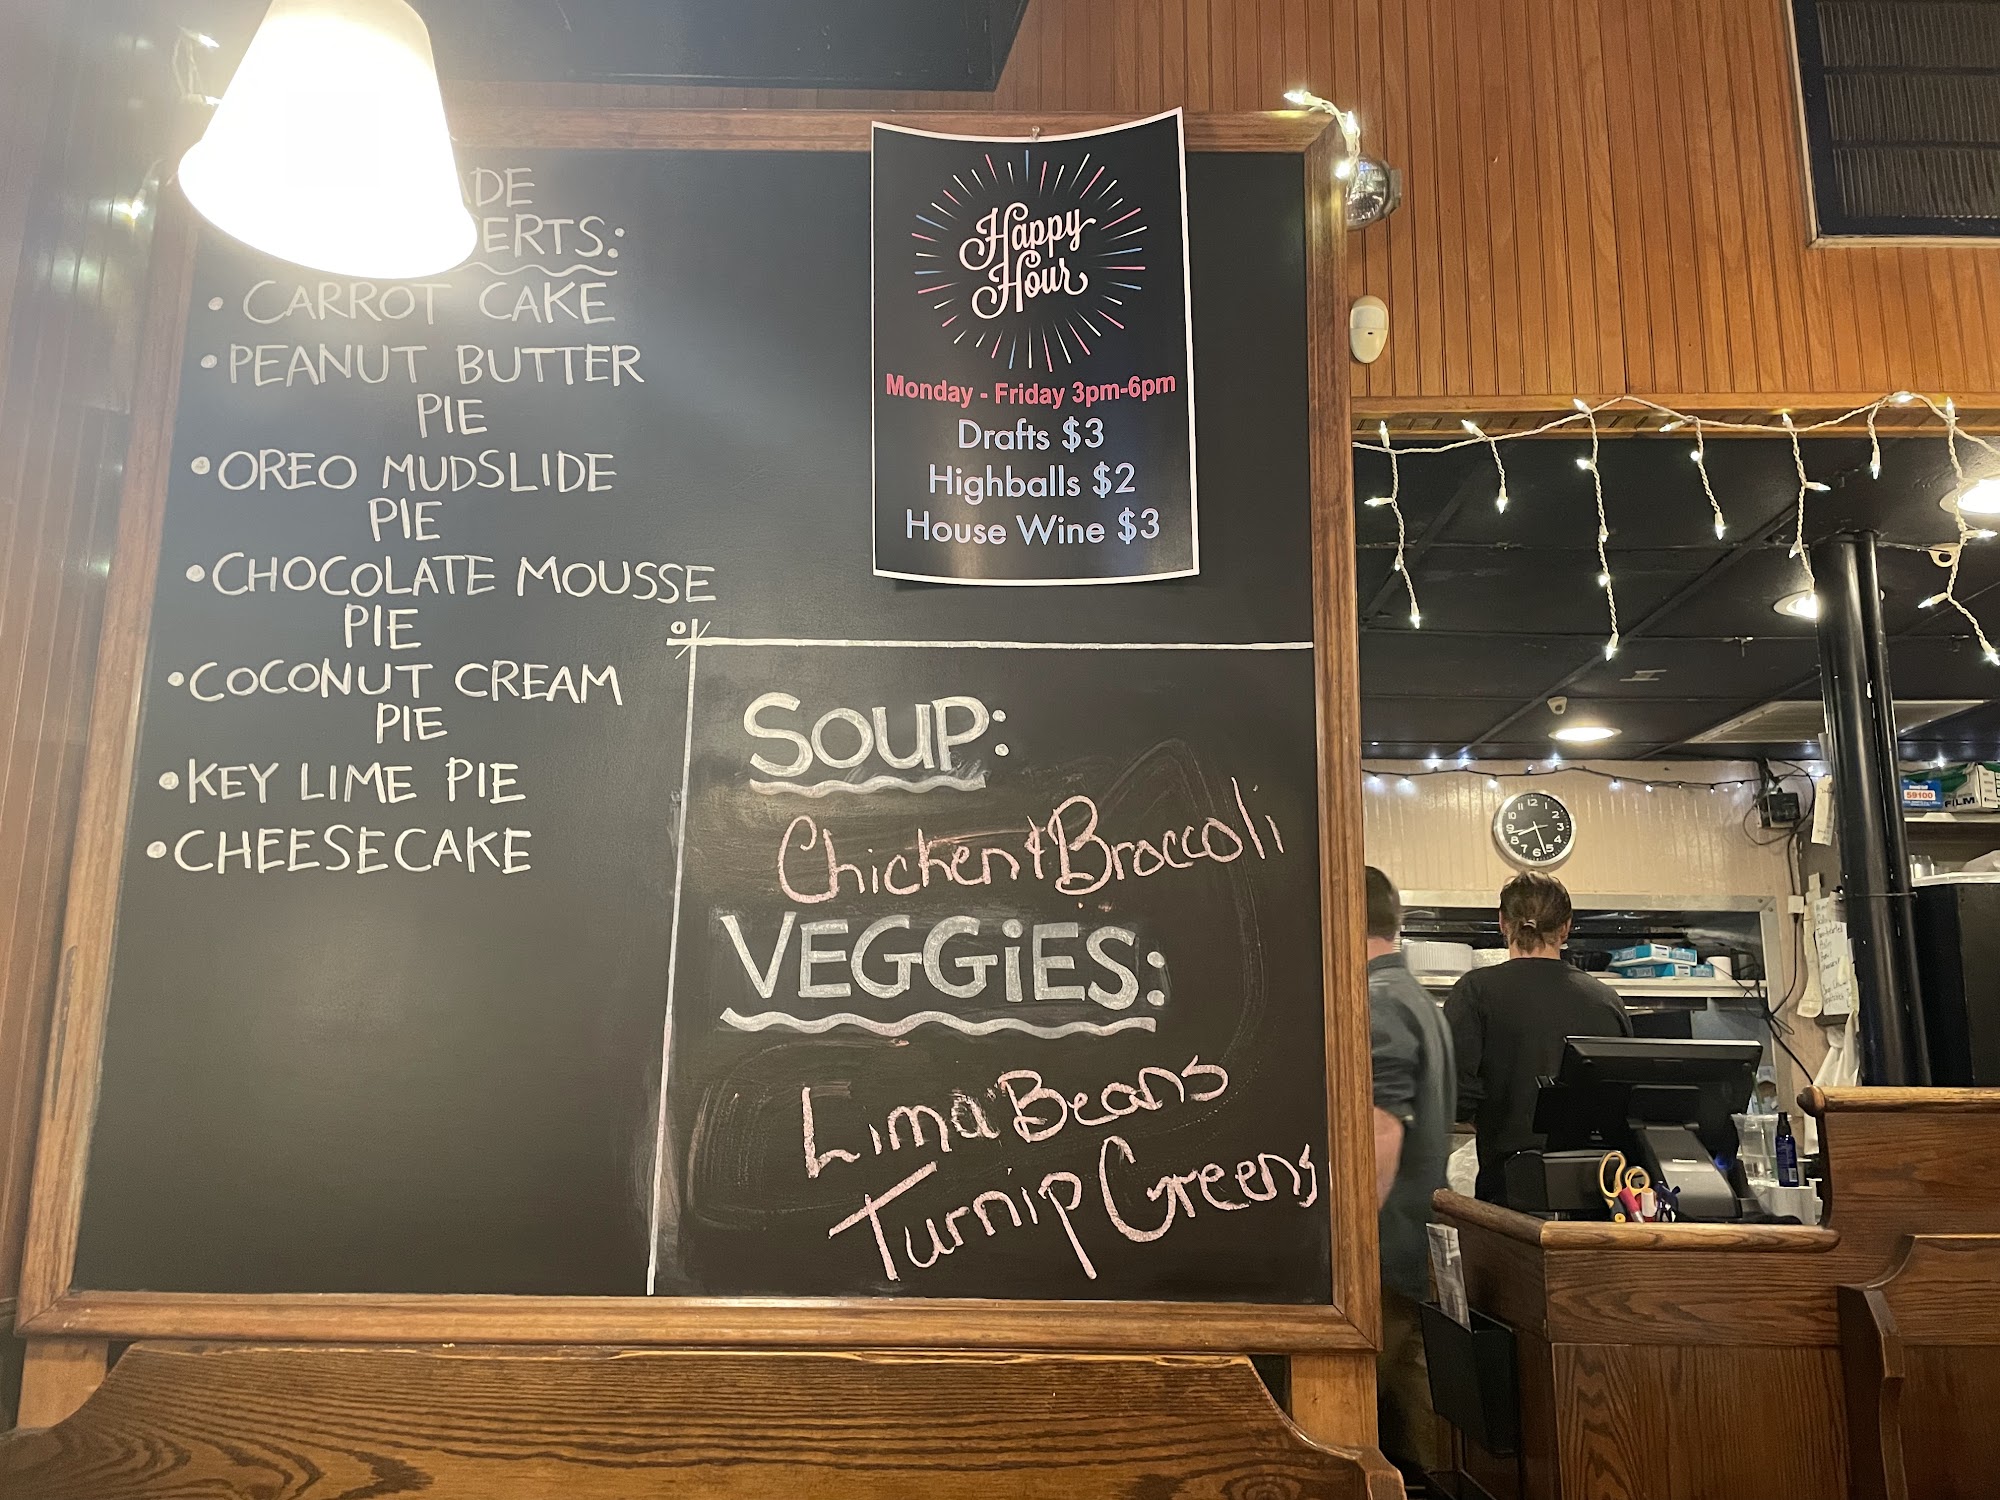 DE
ERTS:
• CARROT CAKE
• PEANUT BUTTER
PIE
• OREO MUDSLIDE
PIE
• CHOCOLATE MOUSSE
PIE
• COCONUT CREAM
PIE
• KEY LIME PIE
• CHEESECAKE
Happy
Hour
Monday - Friday 3pm-6pm
Drafts $3
Highballs $2
House Wine $3
SOUP:
Chicken & Broccoli
VEGGiES:
Lima Beans
Turnip Greens
12
1
2
3
4
5
6
7
8
9
10
11
59100
FILM